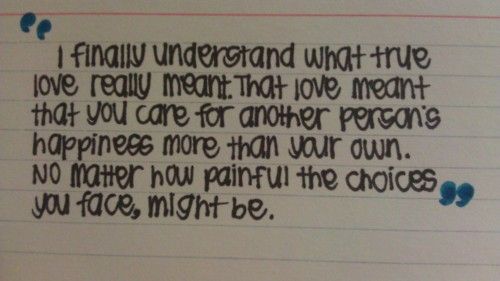 “ I finally understand what true
love really meant. That love meant
that you care for another person's
happiness more than your own.
No matter how painful the choices
you face, might be. ”